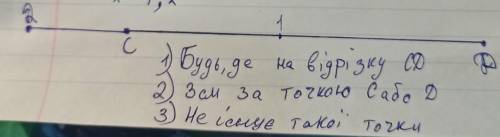 C 1
1) Будь, де на відрізку CD
2) 3см за точкою С або D
3) Не існує такої точки